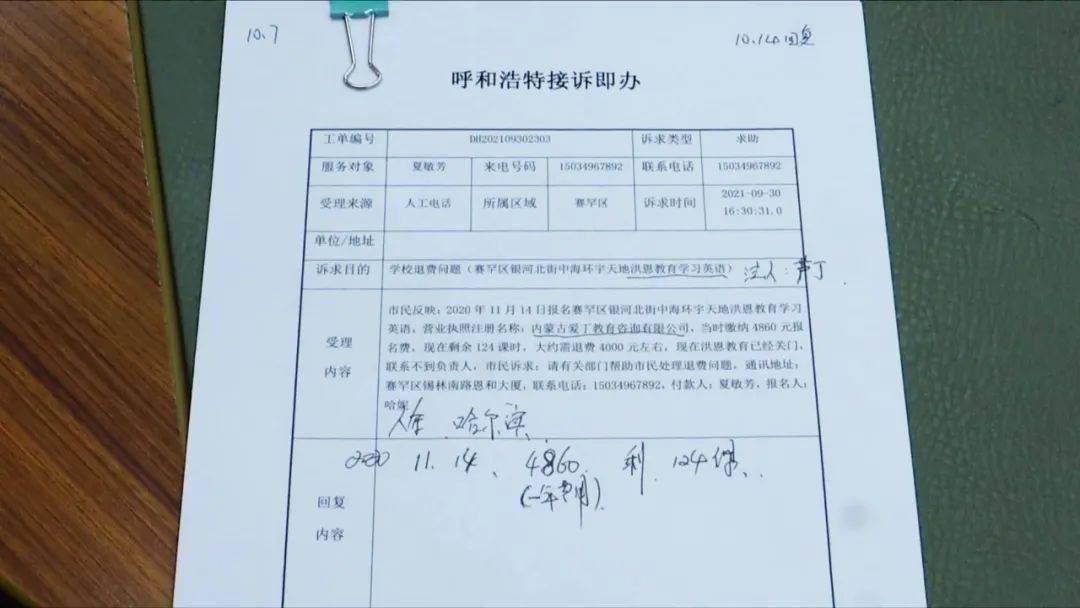 10.7
10.14回复
呼和浩特接诉即办
工单编号 DH202109302303 诉求类型 求助
服务对象 夏敏芳 来电号码 15034967892 联系电话 15034967892
受理来源 人工电话 所属区域 赛罕区 诉求时间 2021-09-30
16:30:31.0
单位/地址
诉求目的 学校退费问题（赛罕区银河北街中海环宇天地洪恩教育学习英语） 法人：芦丁
受理
内容
市民反映：2020年11月14日报名赛罕区银河北街中海环宇天地洪恩教育学习
英语，营业执照注册名称：内蒙古爱丁教育咨询有限公司，当时缴纳4860元报
名费，现在剩余124课时，大约需退费4000元左右，现在洪恩教育已经关门，
联系不到负责人，市民诉求：请有关部门帮助市民处理退费问题，通讯地址：
赛罕区锡林南路恩和大厦，联系电话：15034967892，付款人：夏敏芳，报名人：
哈妮
人在 哈尔滨
回复
内容
2020 11.14、4860 剩 124课、
(一年费用)